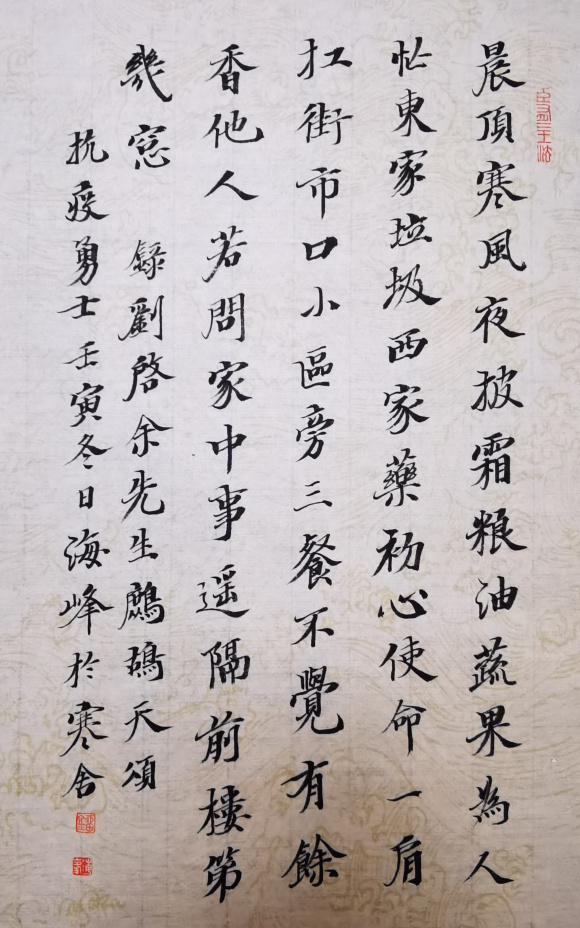 晨頂寒風夜披霜粮油蔬果為人
忙東家垃圾西家藥初心使命一肩
扛街市口小區旁三餐不覺有餘
香他人若問家中事遥隔前樓第
幾窓 錄劉啓余先生鷓鴣天頌
抗疫勇士壬寅冬日海峰於寒舍